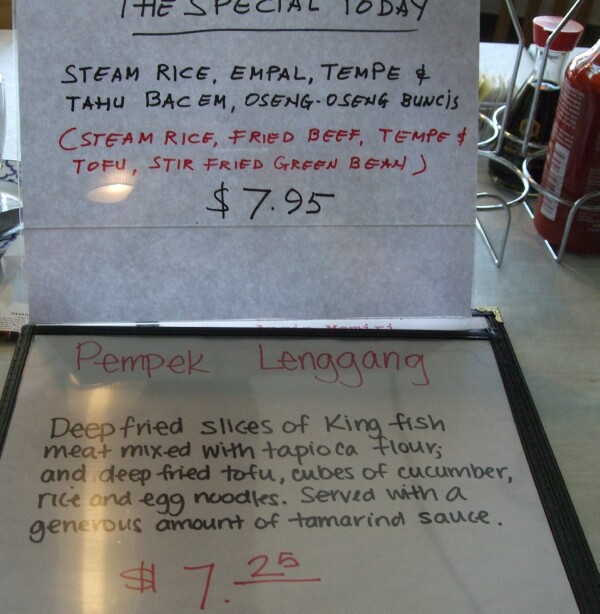 THE SPECIAL TODAY
STEAM RICE, EMPAL, TEMPE &
TAHU BACEM, OSENG-OSENG BUNCIS
(STEAM RICE, FRIED BEEF, TEMPE &
TOFU, STIR FRIED GREEN BEAN)
$7.95
Pempek Lenggang
Deep fried slices of King fish
meat mixed with tapioca flour,
and deep fried tofu, cubes of cucumber,
rice and egg noodles. Served with a
generous amount of tamarind sauce.
$7.25